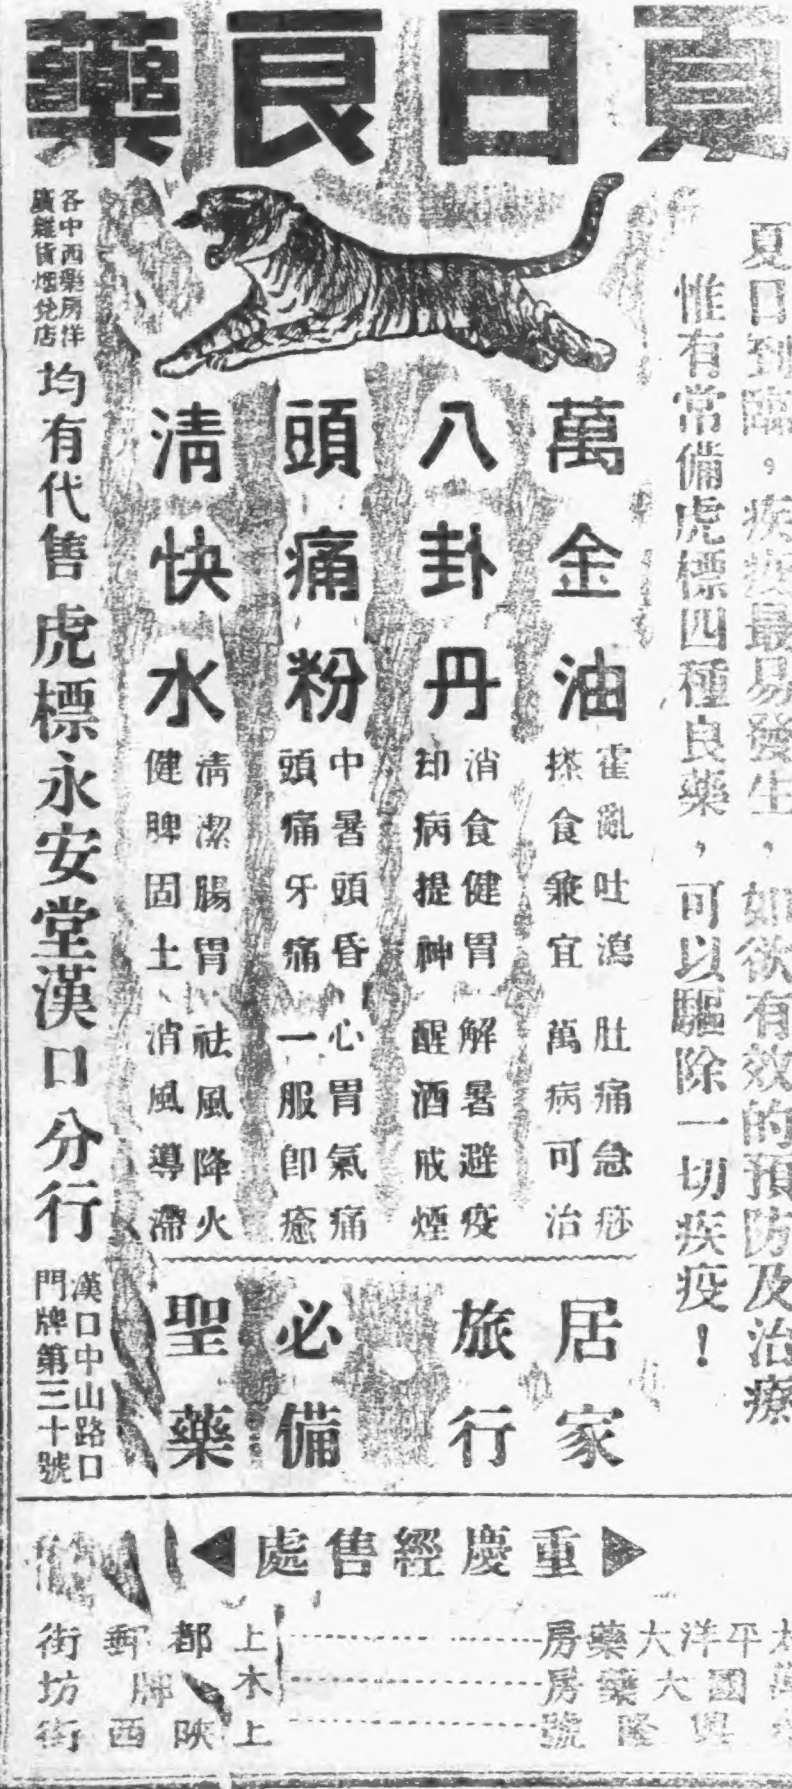 夏日良藥
夏日到臨，疾疫最易發生，如欲有效的預防及治療
惟有常備虎標四種良藥，可以驅除一切疾疫！
萬金油
霍亂吐瀉 肚痛急痧
搽食兼宜 萬病可治
八卦丹
消食健胃 解暑避疫
却病提神 醒酒戒煙
頭痛粉
中暑頭昏 心胃氣痛
頭痛牙痛 一服即癒
清快水
清潔腸胃 祛風降火
健脾固土 消風導滯
居家旅行
必備聖藥
各中西藥房洋
廣雜貨煙兌店
均有代售
虎標永安堂漢口分行
漢口中山路口
門牌第三十號
重慶經售處
太平洋大藥房………上都郵街
國大藥房………木牌坊
興隆號………上陝西街